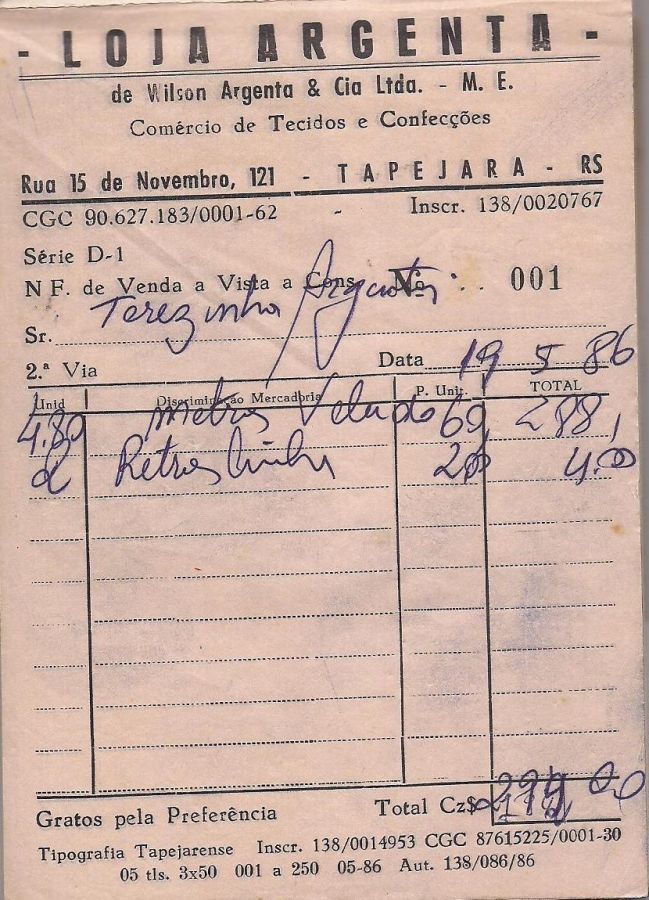 - LOJA ARGENTA -
de Wilson Argenta & Cia Ltda. - M. E.
Comércio de Tecidos e Confecções
Rua 15 de Novembro, 121 - TAPEJARA - RS
CGC 90.627.183/0001-62 - Inscr. 138/0020767
Série D-1
N F. de Venda a Vista a Cons. Nº .. 001
Terezinha Argenta
Sr.
2.ª Via Data 19 5 86
Unid Discriminação Mercadoria P. Unit. TOTAL
4.80 metros Veludo 60 288,
2 Retros linha 200 4.00
Gratos pela Preferência Total Cz$
Tipografia Tapejarense Inscr. 138/0014953 CGC 87615225/0001-30
05 tls. 3x50 001 a 250 05-86 Aut. 138/086/86